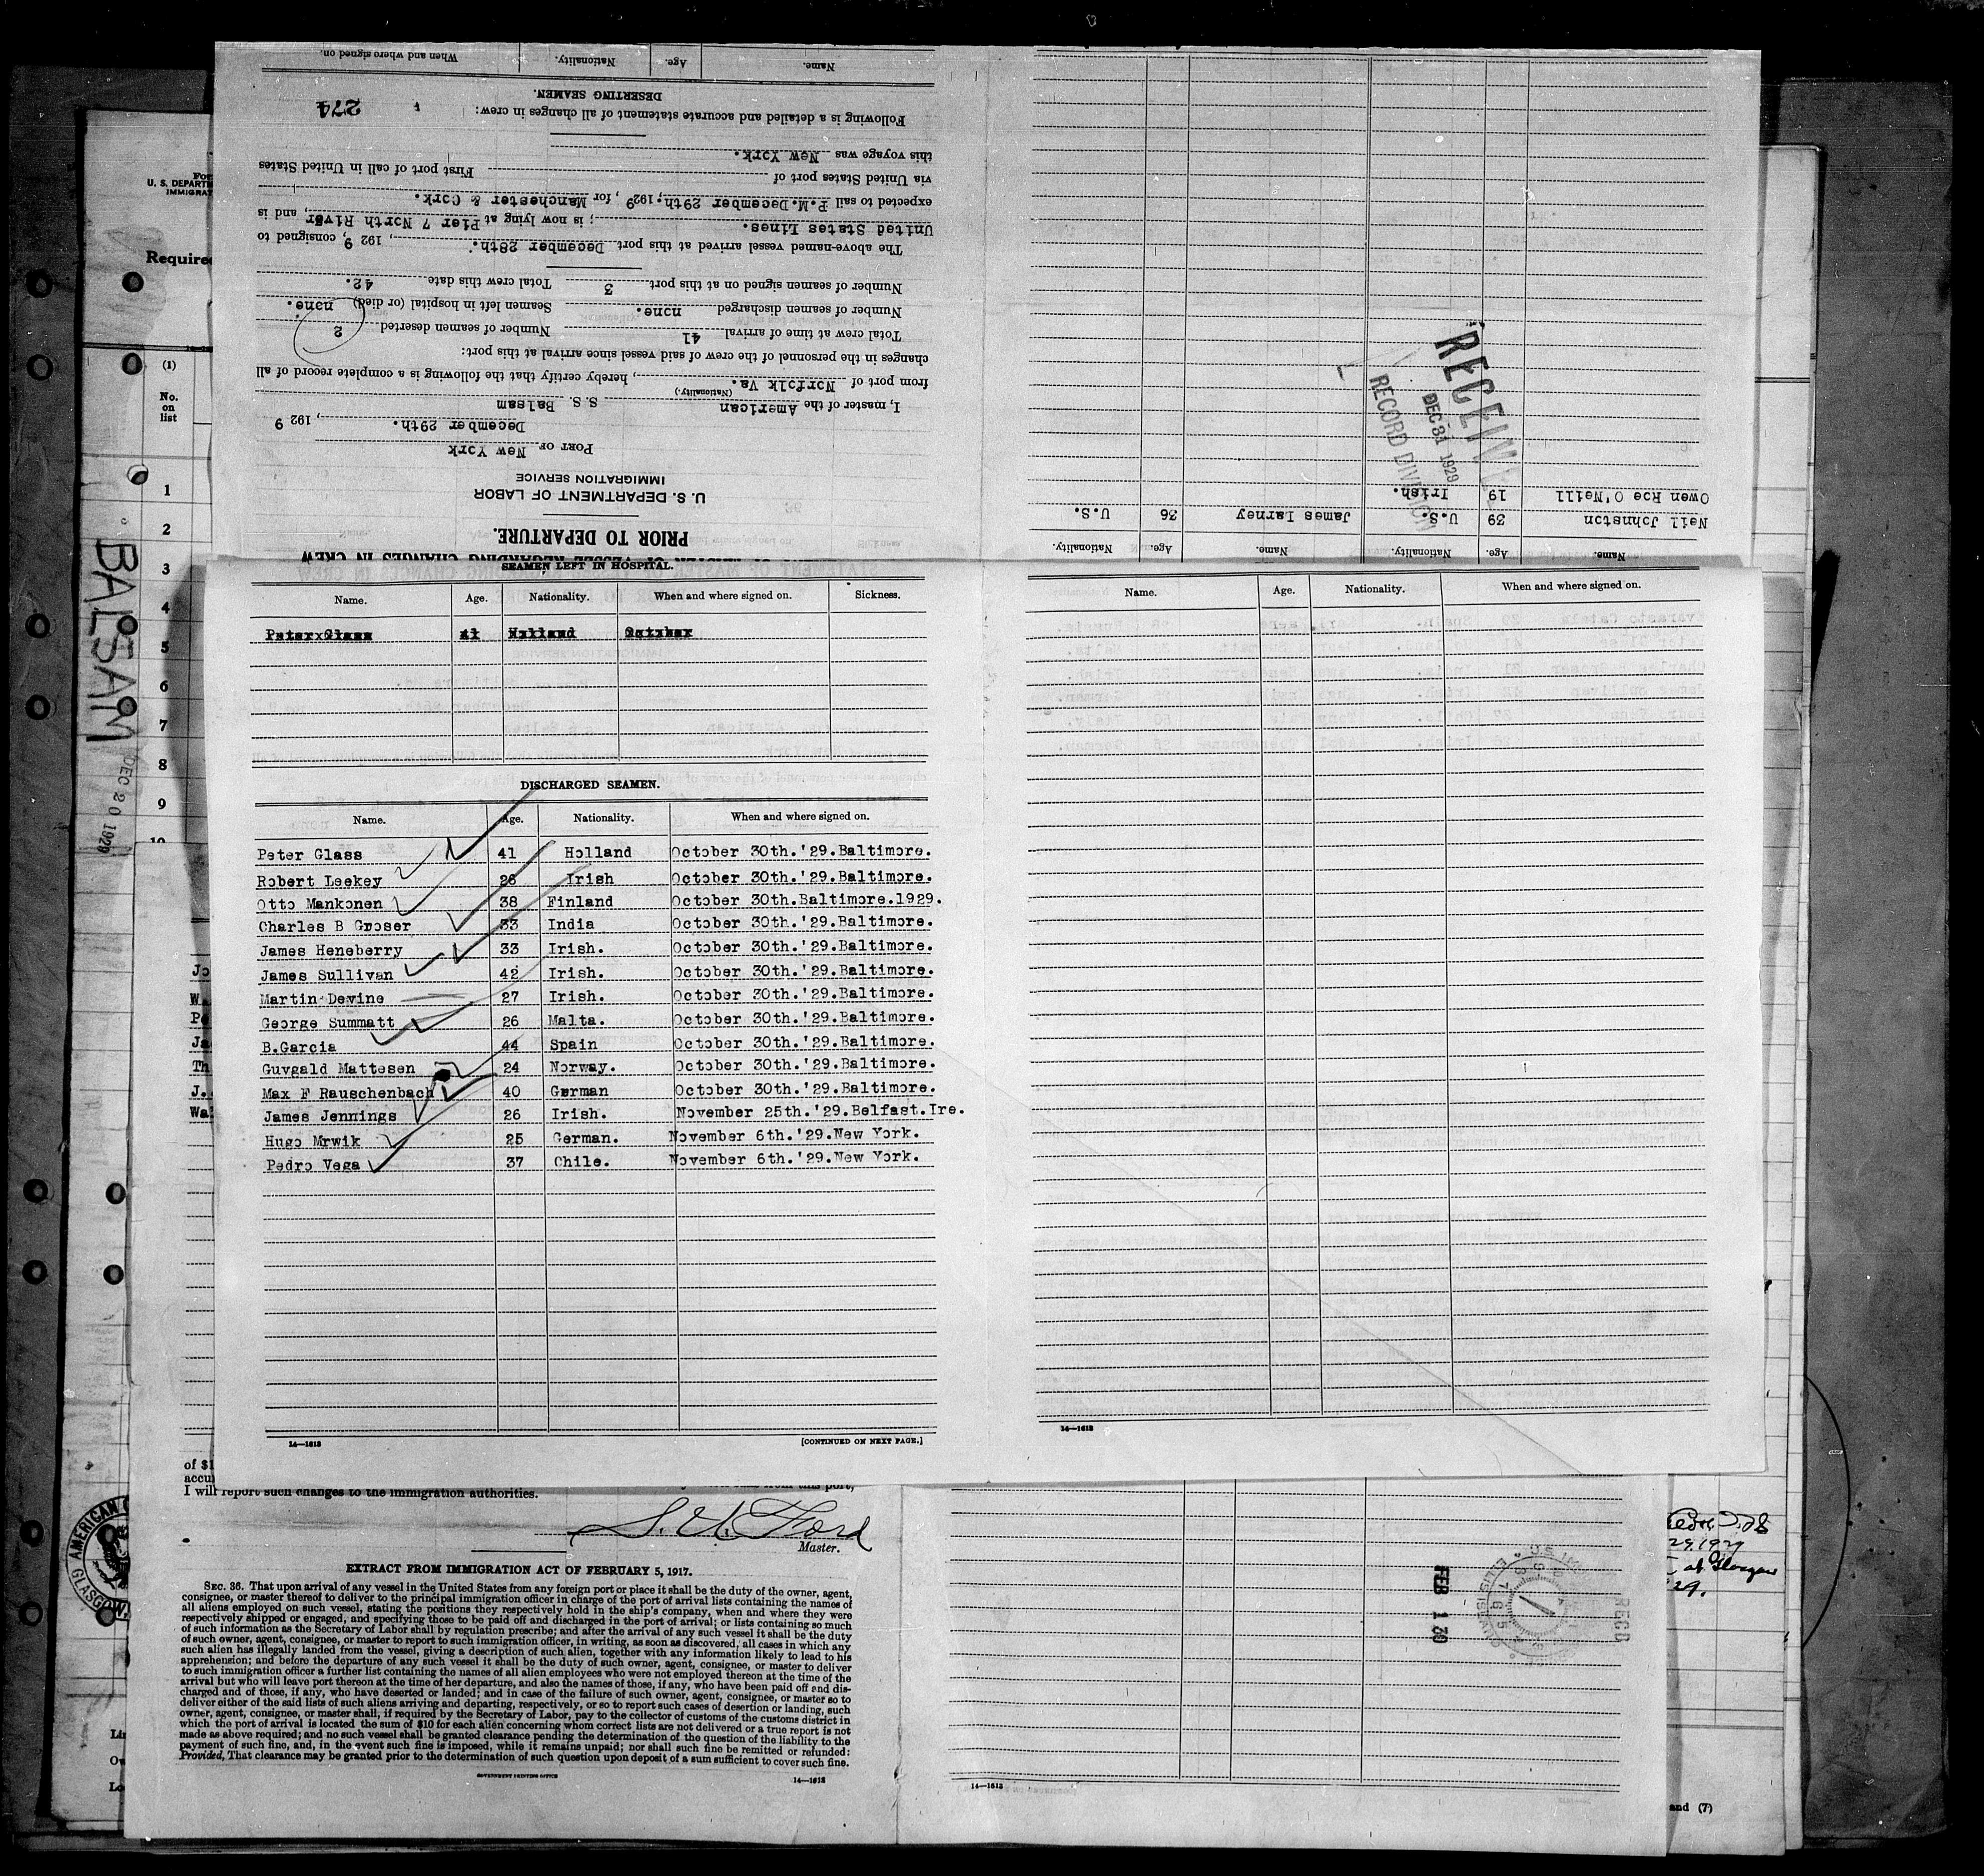 For
U. S. DEPARTM
IMMIGRAT
Require
(1)
No.
on
list
1
2
3
4
5
6
7
8
9
10
BALSAM
DEC 20 1929
STATEMENT OF MASTER OF VESSEL REGARDING CHANGES IN CREW
PRIOR TO DEPARTURE.
U. S. DEPARTMENT OF LABOR
IMMIGRATION SERVICE
PORT OF New York
December 29th. , 192 9
I, master of the American S.S. Balsam
(Nationality.)
from port of Norfolk Va. , hereby certify that the following is a complete record of all
changes in the personnel of the crew of said vessel since arrival at this port:
Total crew at time of arrival 41 Number of seamen deserted 2
Number of seamen discharged none. Seamen left in hospital (or died) none.
Number of seamen signed on at this port 3 Total crew this date 42.
The above-named vessel arrived at this port December 28th. , 192 9, consigned to
United States Lines. ; is now lying at Pier 7 North River, and is
expected to sail P.M. December 29th. 1929, for Manchester & Cork.
via United States port of First port of call in United States
this voyage was New York.
Following is a detailed and accurate statement of all changes in crew: 274
DESERTING SEAMEN.
Name. Age. Nationality. When and where signed on.
Name. Age. Nationality. Name. Age. Nationality.
Neil Johnston 39 U.S. James Larney 36 U.S.
Owen Roe O'Neill 19 Irish.
RECEIVED
DEC 31 1929
RECORD DIVISION
SEAMEN LEFT IN HOSPITAL.
Name. Age. Nationality. When and where signed on. Sickness.
Peter Glass 41 Holland October
DISCHARGED SEAMEN.
Name. Age. Nationality. When and where signed on.
Peter Glass 41 Holland October 30th.'29.Baltimore.
Robert Leekey 26 Irish October 30th.'29.Baltimore.
Otto Mankonen 38 Finland October 30th.Baltimore.1929.
Charles B Groser 33 India October 30th.'29.Baltimore.
James Heneberry 33 Irish. October 30th.'29.Baltimore.
James Sullivan 42 Irish. October 30th.'29.Baltimore.
Martin Devine 27 Irish. October 30th.'29.Baltimore.
George Summatt 26 Malta. October 30th.'29.Baltimore.
B.Garcia 44 Spain October 30th.'29.Baltimore.
Guvgald Mattesen 24 Norway. October 30th.'29.Baltimore.
Max F Rauschenbach 40 German October 30th.'29.Baltimore.
James Jennings 26 Irish. November 25th.'29.Belfast.Ire.
Hugo Mrwik 25 German. November 6th.'29.New York.
Pedro Vega 37 Chile. November 6th.'29.New York.
14—1613 [CONTINUED ON NEXT PAGE.]
Name. Age. Nationality. When and where signed on.
14—1613
Jo
Pe
Ja
Th
J.
Wa
of $1
accu
I will report such changes to the immigration authorities.
S. W. Ford
Master.
EXTRACT FROM IMMIGRATION ACT OF FEBRUARY 5, 1917.
SEC. 36. That upon arrival of any vessel in the United States from any foreign port or place it shall be the duty of the owner, agent,
consignee, or master thereof to deliver to the principal immigration officer in charge of the port of arrival lists containing the names of
all aliens employed on such vessel, stating the positions they respectively hold in the ship's company, when and where they were
respectively shipped or engaged, and specifying those to be paid off and discharged in the port of arrival; or lists containing so much
of such information as the Secretary of Labor shall by regulation prescribe; and after the arrival of any such vessel it shall be the duty
of such owner, agent, consignee, or master to report to such immigration officer, in writing, as soon as discovered, all cases in which any
such alien has illegally landed from the vessel, giving a description of such alien, together with any information likely to lead to his
apprehension; and before the departure of any such vessel it shall be the duty of such owner, agent, consignee, or master to deliver
to such immigration officer a further list containing the names of all alien employees who were not employed thereon at the time of the
arrival but who will leave port thereon at the time of her departure, and also the names of those, if any, who have been paid off and dis-
charged and of those, if any, who have deserted or landed; and in case of the failure of such owner, agent, consignee, or master so to
deliver either of the said lists of such aliens arriving and departing, respectively, or so to report such cases of desertion or landing, such
owner, agent, consignee, or master shall, if required by the Secretary of Labor, pay to the collector of customs of the customs district in
which the port of arrival is located the sum of $10 for each alien concerning whom correct lists are not delivered or a true report is not
made as above required; and no such vessel shall be granted clearance pending the determination of the question of the liability to the
payment of such fine, and, in the event such fine is imposed, while it remains unpaid; nor shall such fine be remitted or refunded:
Provided, That clearance may be granted prior to the determination of such question upon deposit of a sum sufficient to cover such fine.
GOVERNMENT PRINTING OFFICE 14—1613
14—1613
AMERICAN
GLASGOW
FEB 1 30
REC'D
at Glasgow
29.
and (7)